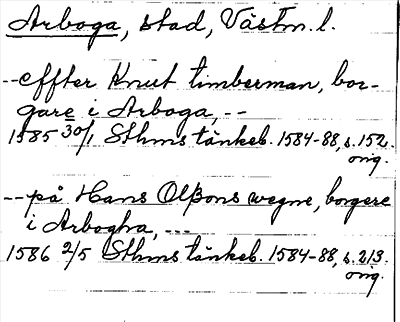 Arboga, stad, Västm. l.
--effter Knut timberman, bor-
gare i Arboga, --
1585 30/1 Sthms tänkeb. 1584-88, s. 152.
orig.
--på Hans Olßons wegne, borgere
i Arbogha, ---
1586 2/5 Sthms tänkeb. 1584-88, s. 213.
orig.